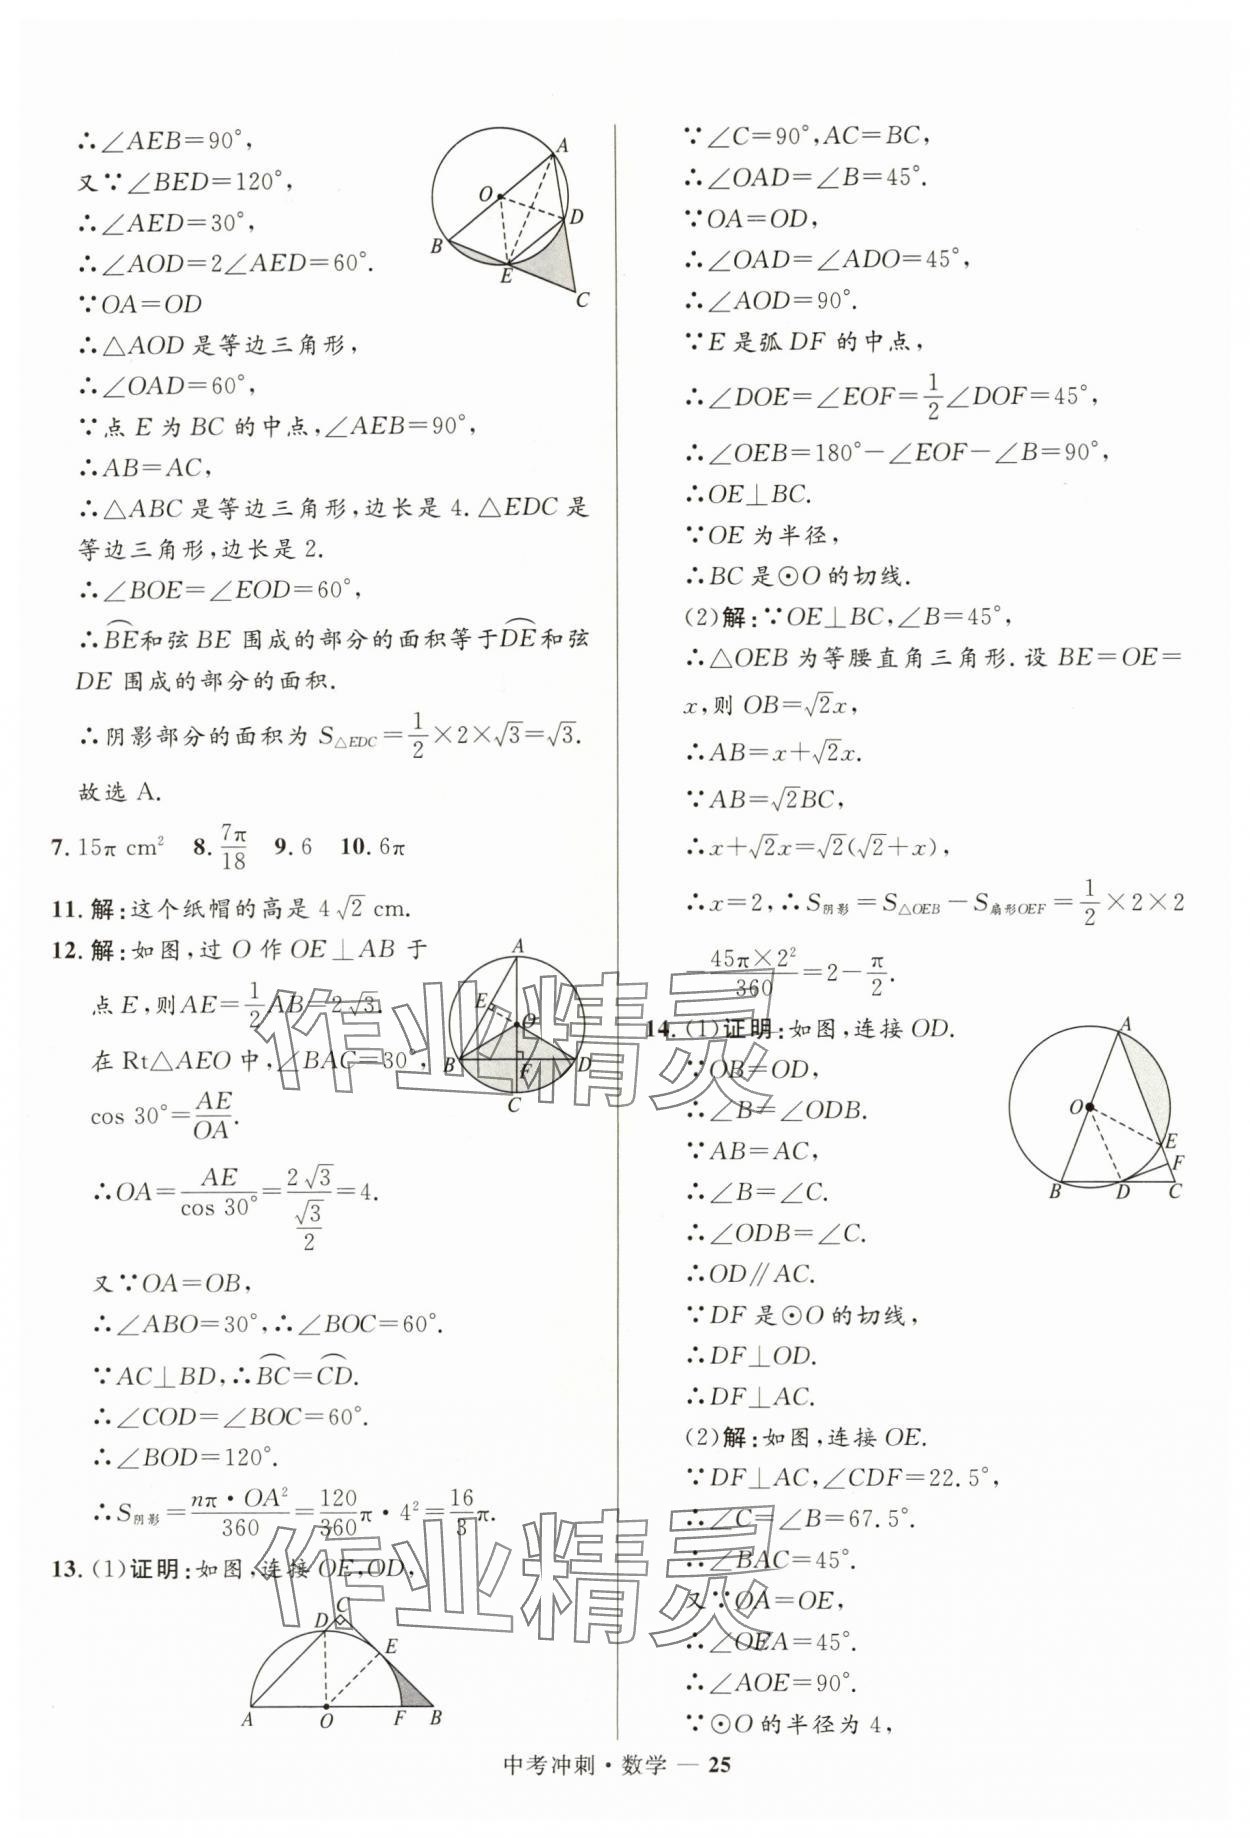 ∴∠AEB=90°,
又∵∠BED=120°,
∴∠AED=30°,
∴∠AOD=2∠AED=60°.
∵OA=OD
∴△AOD是等边三角形,
∴∠OAD=60°,
∵点E为BC的中点,∠AEB=90°,
∴AB=AC,
∴△ABC是等边三角形,边长是4.△EDC是
等边三角形,边长是2.
∴∠BOE=∠EOD=60°,
∴⌒BE和弦BE围成的部分的面积等于⌒DE和弦
DE围成的部分的面积.
∴阴影部分的面积为S△EDC=1/2×2×√3=√3.
故选A.
7.15π cm² 8.7π/18 9.6 10.6π
11.解:这个纸帽的高是4√2 cm.
12.解:如图,过O作OE⊥AB于
点E,则AE=1/2AB=2√3.
在Rt△AEO中,∠BAC=30°,
cos 30°=AE/OA.
∴OA=AE/cos 30°=2√3/(√3/2)=4.
又∵OA=OB,
∴∠ABO=30°,∴∠BOC=60°.
∵AC⊥BD,∴⌒BC=⌒CD.
∴∠COD=∠BOC=60°.
∴∠BOD=120°.
∴S阴影=nπ·OA²/360=120/360π·4²=16/3π.
13.(1)证明:如图,连接OE,OD,
A
O
D
B
E
C
A
E
O
B
F
D
C
C
D
E
A
O
F
B
∵∠C=90°,AC=BC,
∴∠OAD=∠B=45°.
∵OA=OD,
∴∠OAD=∠ADO=45°,
∴∠AOD=90°.
∵E是弧DF的中点,
∴∠DOE=∠EOF=1/2∠DOF=45°,
∴∠OEB=180°-∠EOF-∠B=90°,
∴OE⊥BC.
∵OE为半径,
∴BC是⊙O的切线.
(2)解:∵OE⊥BC,∠B=45°,
∴△OEB为等腰直角三角形.设BE=OE=
x,则OB=√2x,
∴AB=x+√2x.
∵AB=√2BC,
∴x+√2x=√2(√2+x),
∴x=2,∴S阴影=S△OEB-S扇形OEF=1/2×2×2
-45π×2²/360=2-π/2.
14.(1)证明:如图,连接OD.
∵OB=OD,
∴∠B=∠ODB.
∵AB=AC,
∴∠B=∠C.
∴∠ODB=∠C.
∴OD∥AC.
∵DF是⊙O的切线,
∴DF⊥OD.
∴DF⊥AC.
(2)解:如图,连接OE.
∵DF⊥AC,∠CDF=22.5°,
∴∠C=∠B=67.5°.
∴∠BAC=45°.
又∵OA=OE,
∴∠OEA=45°.
∴∠AOE=90°.
∵⊙O的半径为4,
A
O
E
F
B
D
C
作业精灵
作业精灵
中考冲刺·数学 — 25